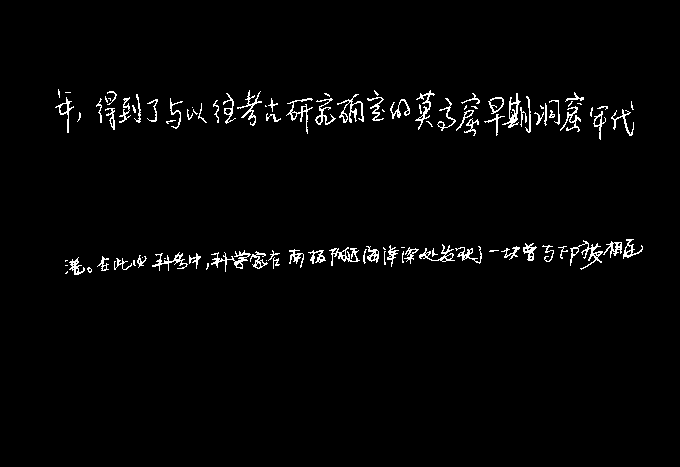 年，得到了与以往考古研究确定的莫高窟早期洞窟年代
港。在此次科考中，科学家在南极附近海洋深处发现了一块曾与印度相连